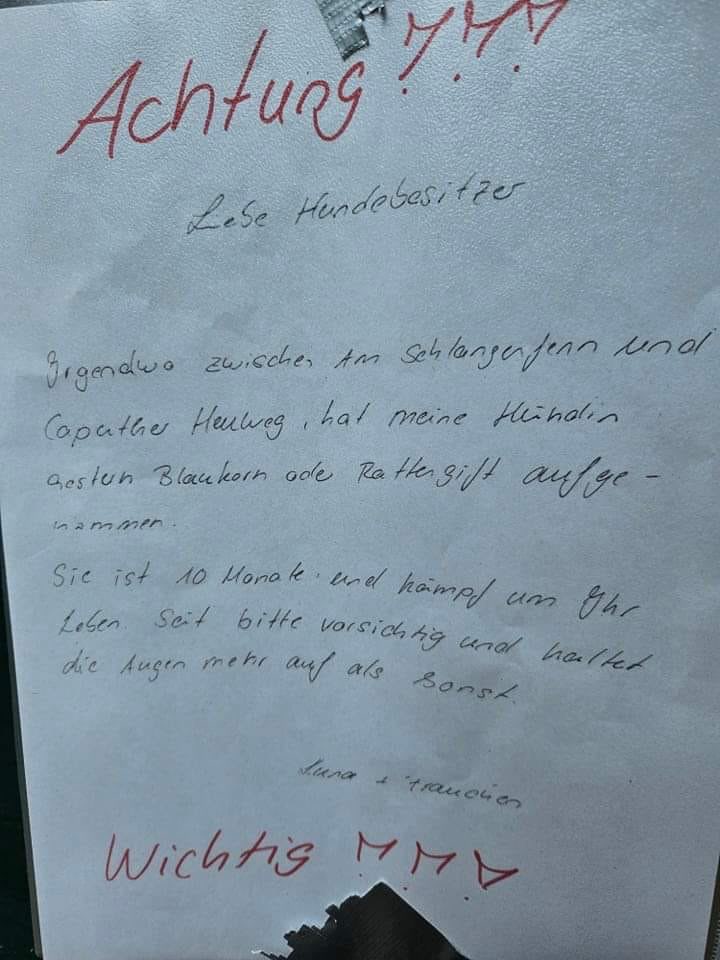 Achtung!!!
Liebe Hundebesitzer
Irgendwo zwischen Am Schlangenfenn und
Caputher Heuweg, hat meine Hündin
gestern Blaukorn oder Rattengift aufge-
nommen.
Sie ist 10 Monate und kämpf um Ihr
Leben. Seit bitte vorsichtig und haltet
die Augen mehr auf als sonst.
Luna +
Wichtig!!!